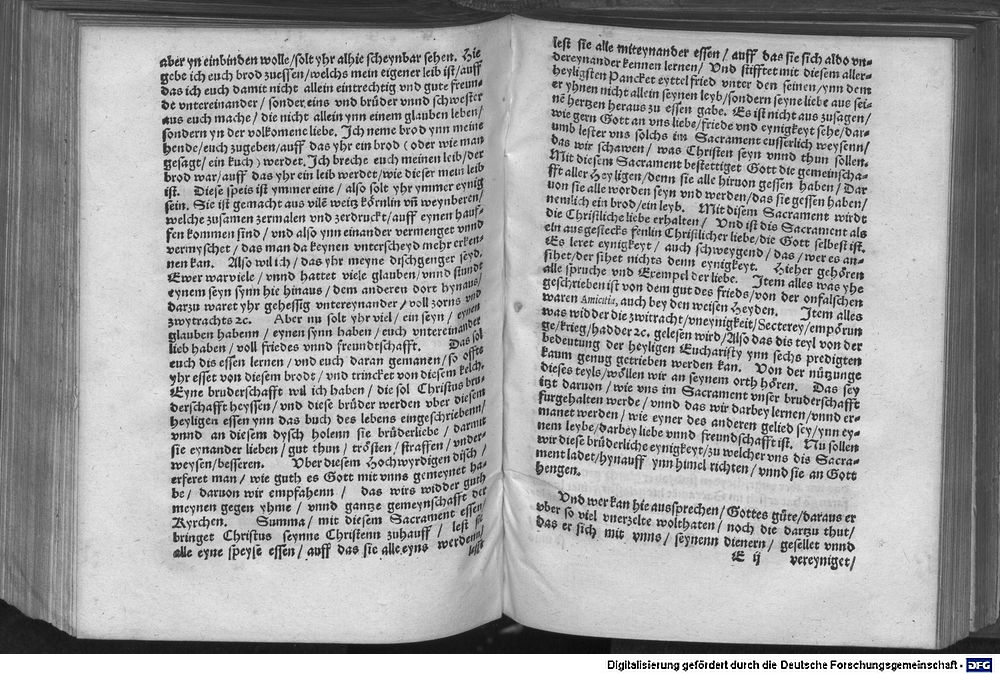 aber yn einbinden wolle/solt yhr alhie scheynbar sehen. Hie
gebe ich euch brod zuessen/welchs mein eigener leib ist/auff
das ich euch damit nicht allein eintrechtig vnd gute freun-
de vntereinander/sonder eins vnd brüder vnnd schwester
aus euch mache/die nicht allein ynn einem glauben leben/
sondern yn der volkomene liebe. Ich neme brod ynn meine
hende/euch zugeben/auff das yhr ein brod (oder wie man
gesagt/ein kuch) werdet. Ich breche euch meinen leib/der
brod war/auff das yhr ein leib werdet/wie dieser mein leib
ist. Diese speis ist ymmer eine/also solt yhr ymmer eynig
sein. Sie ist gemacht aus vile weitz kőrnlin vñ weynberen/
welche zusamen zermalen vnd zerdruckt/auff eynen hauf-
fen kommen sind/vnd also ynn einander vermenget vnnd
vermyschet/das man da keynen vnterscheyd mehr erken-
nen kan. Also wil ich/das yhr meyne dischgenger seyd.
Ewer war viele/vnnd hattet viele glauben/vnnd stundt
eynem seyn synn hie hinaus/dem anderen dort hynaus/
darzu waret yhr gehessig vntereynander/voll zorns vnd
zwytrachts ꝛc. Aber nu solt yhr viel/ein seyn/eynen
glauben habenn/eynen synn haben/euch vntereinander
lieb haben/voll friedes vnnd freundtschafft. Das sol
euch dis essen lernen/vnd euch daran gemanen/so offte
yhr esset von diesem brodt/vnd trincket von diesem kelch.
Eyne bruderschafft wil ich haben/die sol Christus bru-
derschafft heyssen/vnd diese brűder werden vber diesem
heyligen essen ynn das buch des lebens eingeschriebenn/
vnnd an diesem dysch holenn sie brűderliebe/darmit
sie eynander lieben/gut thun/trősten/straffen/vnder-
weysen/besseren. Vber diesem Hochwyrdigen disch/
erferet man/wie guth es Gott mit vnns gemeynet ha-
be/daruon wir empfahenn/das wirs widder guth
meynen gegen yhme/vnnd gantze gemeynschafft der
Kyrchen. Summa/mit diesem Sacrament essen/
bringet Christus seynne Christenn zuhauff/lest sie
alle eyne speyse essen/auff das sie alle eyns werdenn/
lesst
lest sie alle miteynander essen/auff das sie sich aldo vn-
dereynander kennen lernen/Vnd stifftet mit diesem aller-
heyligsten Pancket eyttel fried vnter den seinen/ynn dem
er yhnen nicht allein seynen leyb/sondern seyne liebe aus sei-
nē hertzen heraus zu essen gabe. Es ist nicht aus zusagen/
wie gern Gott an vns liebe/friede vnd eynigkeyt sehe/dar-
umb lester vns solchs im Sacrament eusserlich weysenn/
das wir schawen/was Christen seyn vnnd thun sollen.
Mit diesem Sacrament bestettiget Gott die gemeinscha-
fft aller Heyligen/denn sie alle hiruon gessen haben/Dar
uon sie alle worden seyn vnd werden/das sie gessen haben/
nemlich ein brod/ein leyb. Mit disem Sacrament wirdt
die Christliche liebe erhalten/Vnd ist dis Sacrament als
ein ausgesteckts fenlin Christlicher liebe/die Gott selbest ist.
Es leret eynigkeyt/auch schweygend/das/wer es an-
sihet/der sihet nichts denn eynigkeyt. Hieher gehören
alle spruche vnd Exempel der liebe. Item alles was yhe
geschrieben ist von dem gut des frieds/von der onfalschen
waren Amicitia, auch bey den weisen Heyden. Item alles
was widder die zwitracht/vneynigkeit/Secterey/empőrun
ge/krieg/hadder ꝛc. gelesen wird/Also das dis teyl von der
bedeutung der heyligen Eucharisty ynn sechs predigten
kaum genug getrieben werden kan. Von der nützunge
dieses teyls/wőllen wir an seynem orth hőren. Das sey
itzt daruon/wie vns im Sacrament vnser bruderschafft
furgehalten werde/vnnd das wir darbey lernen/vnnd er-
manet werden/wie eyner des anderen gelied sey/ynn ey-
nem leybe/darbey liebe vnnd freundschafft ist. Nu sollen
wir diese brűderliche eynigkeyt/zu welcher vns dis Sacra-
ment ladet/hynauff ynn himel richten/vnnd sie an Gott
hengen.
Vnd wer kan hie aussprechen/Gottes gűte/daraus er
vber so viel vnerzelte wolthaten/noch die dartzu thut/
das er sich mit vnns/seynenn dienern/gesellet vnnd
E ij vereyniget/
Digitalisierung gefördert durch die Deutsche Forschungsgemeinschaft - DFG